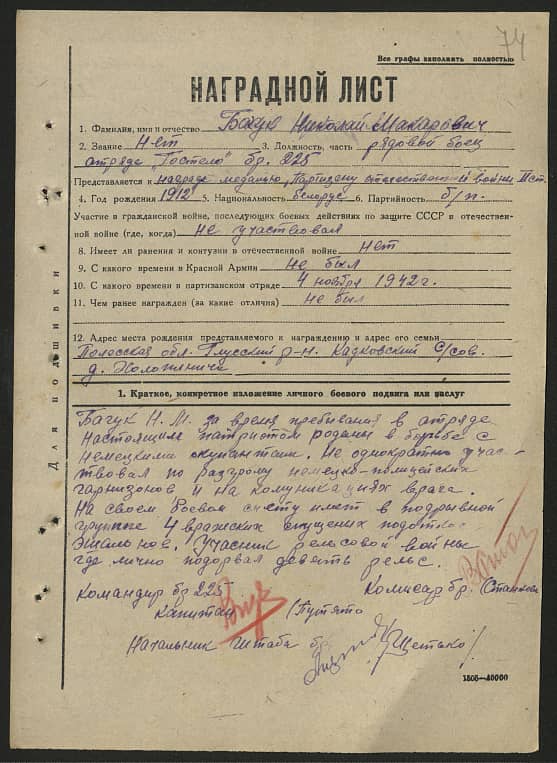 74
Все графы заполнить полностью
НАГРАДНОЙ ЛИСТ
1. Фамилия, имя и отчество Багук Николай Макарович
2. Звание Нет 3. Должность, часть рядовой боец
отряда "Гастело" бр. 225
Представляется к награде медалью „Партизану отечественной войны II ст.
4. Год рождения 1912 5. Национальность белорус 6. Партийность б/п.
Участие в гражданской войне, последующих боевых действиях по защите СССР и отечествен-
ной войне (где, когда) не участвовал
8. Имеет ли ранения и контузии в отечественной войне нет
9. С какого времени в Красной Армии не был
10. С какого времени в партизанском отряде 4 ноября 1942 г.
11. Чем ранее награжден (за какие отличия) не был
12. Адрес места рождения представляемого к награждению и адрес его семьи
Полесская обл. Глусский р-н. Кадковский С/сов.
д.
Для подшивки
1. Краткое, конкретное изложение личного боевого подвига или заслуг
Багук Н. М. за время пребывания в отряде
настоящим патриотом родины в борьбе с
немецкими окупантами. Не однократно учас-
твовал по разгрому немецко-полицейских
гарнизонов и на комуникациях врага.
На своем боевом счету имет в подрывной
группе 4 вражских спущеных подоткос
эшальнов. Учасник рельсовой войны
где лично подорвал девять рельс.
Командир бр 225 Комисар бр.
Капитан /Пустято
Начальник Штаба бр. /Щетько/
1505—40000